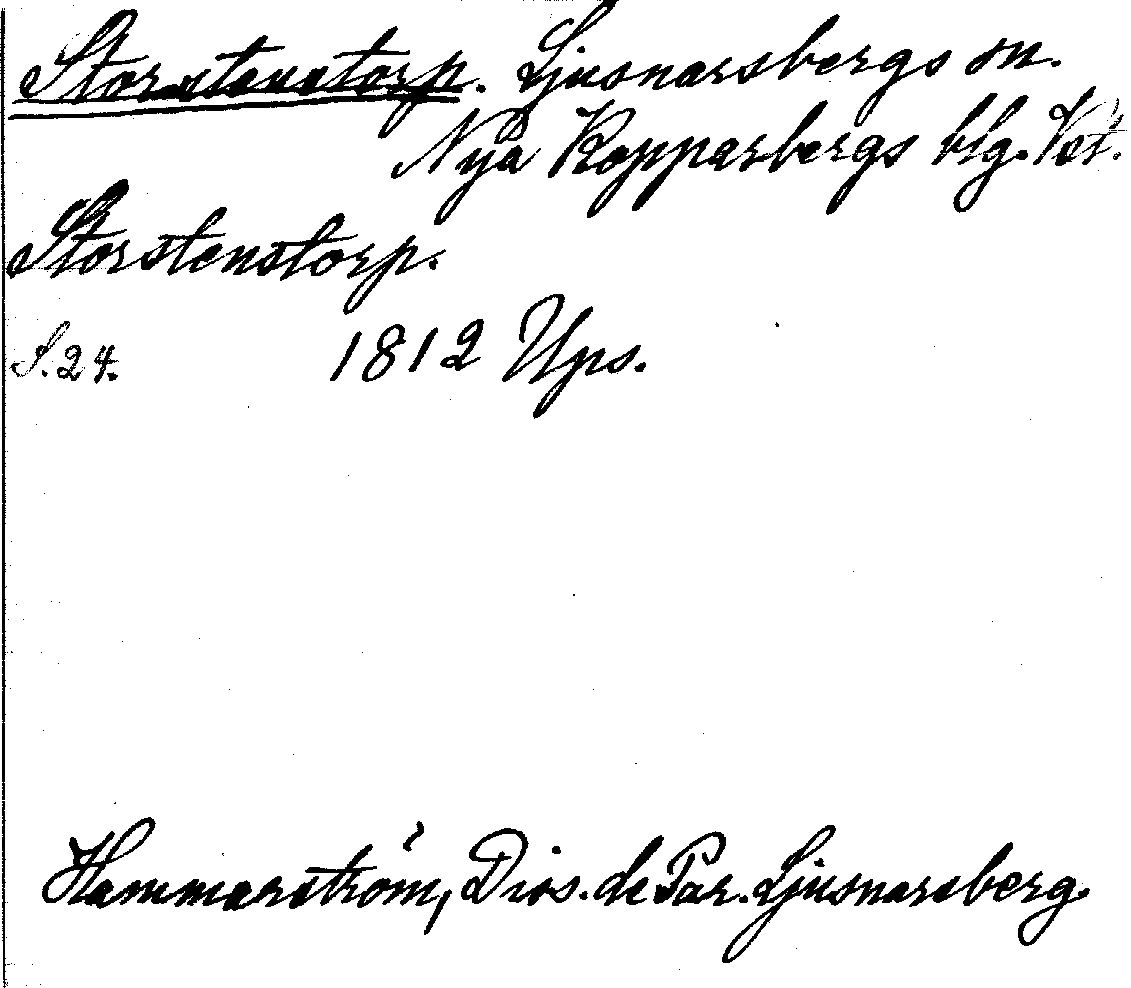 Storstenstorp. Ljusnarsbergs sn.
Nya Kopparbergs blg. Vst.
Storstenstorp.
S. 24. 1812 Ups.
Hammarström, Diss. de Par. Ljusnarsberg.